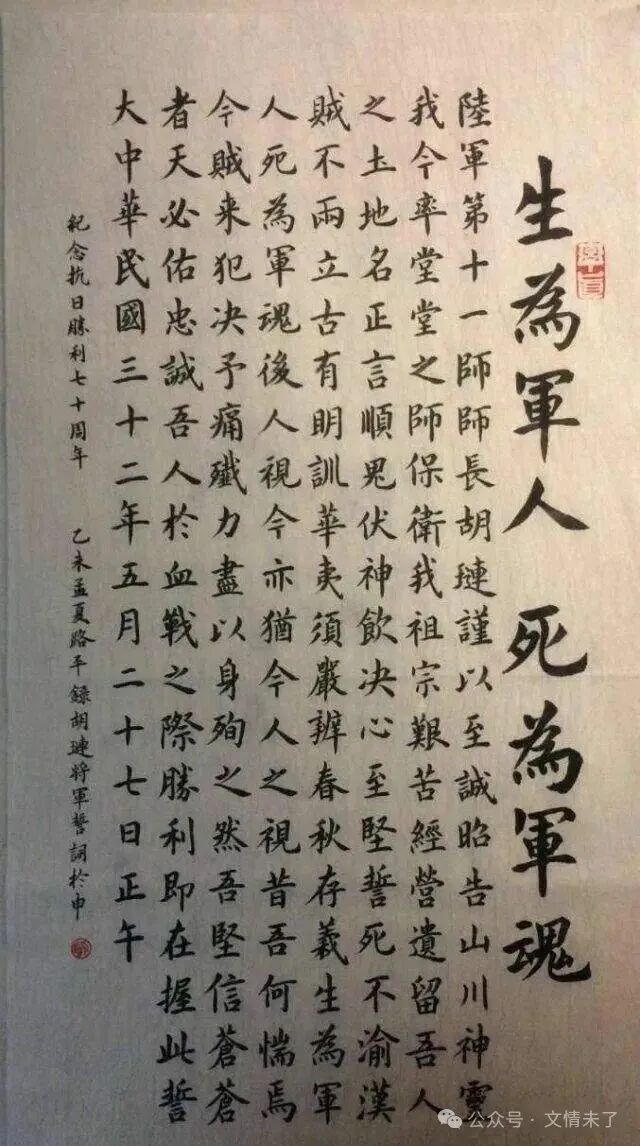 生為軍人 死為軍魂
陸軍第十一師師長胡璉謹以至誠昭告山川神靈
我今率堂堂之師保衛我祖宗艱苦經營遺留吾人
之土地名正言順鬼伏神飲决心至堅誓死不渝漢
賊不兩立古有明訓華夷須嚴辨春秋存義生為軍
人死為軍魂後人視今亦猶今人之視昔吾何惴焉
今賊来犯决予痛殲力盡以身殉之然吾堅信蒼蒼
者天必佑忠誠吾人於血戰之際勝利即在握此誓
大中華民國三十二年五月二十七日正午
紀念抗日勝利七十周年 乙未孟夏路平錄胡璉將軍誓詞於申
公众号 · 文情未了